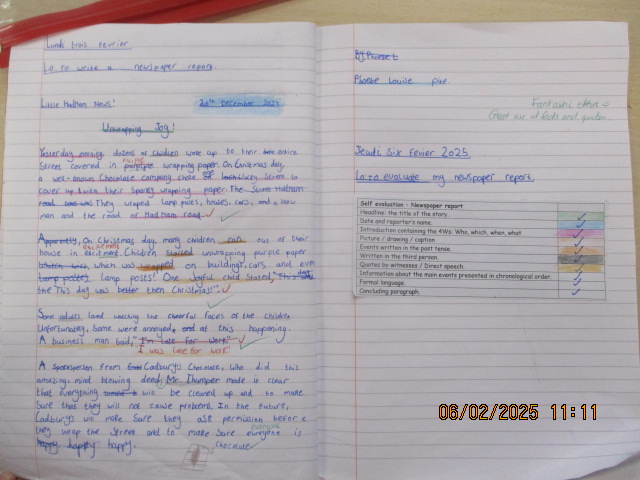 Lundi trois fevrier
Lo to write a newspaper report.
Little Hadham News!
20th December 2024
Unwrapping Joy!
Yesterday morning dozens of children woke up to their entire
street covered in purple wrapping paper. On Christmas day,
a well-known Chocolate company chose Street to
cover up with their spare wrapping paper. The
They wraped lamp posts, houses, cars, and a snow
man and the road of Hadham road.
Apparently, On Christmas day, many children ran out of their
house in excitment. Children started unwrapping purple paper
which was wrapped on buildings, cars and even
lamp posts! One Joyful child Stated, "This day
the This day was better then Christmas!".
Some adults loved watching the cheerful faces of the children.
Unfortunately, Some were annoyed, and at this happening.
A business man said, "I'm late for work!"
I was late for work"
A spokesperson from Cadburys Chocolate, who did this
amazing mind blowing deed, Mr Thumper made is clear
that everything will be cleaned up and to make
sure that they will not cause problems. In the future,
Cadburys will make sure they ask permission before
they wrap the street and to make sure everyone is
happy. happy happy.
everyone
Chocolate
By Phoebe L
Phoebe Louise pire.
Fantastic effort
Great use of facts and quotes.
Jeudi Six Fevier 2025,
La: to evaluate my newspaper report.
Self evaluation - Newspaper report
Headline: the title of the story.
Date and reporter's name.
Introduction containing the 4Ws: Who, which, when, what
Picture / drawing / caption
Events written in the past tense.
Written in the third person.
Quotes by witnesses / Direct speech.
Information about the main events presented in chronological order.
Formal language.
Concluding paragraph.
06/02/2025 11:11